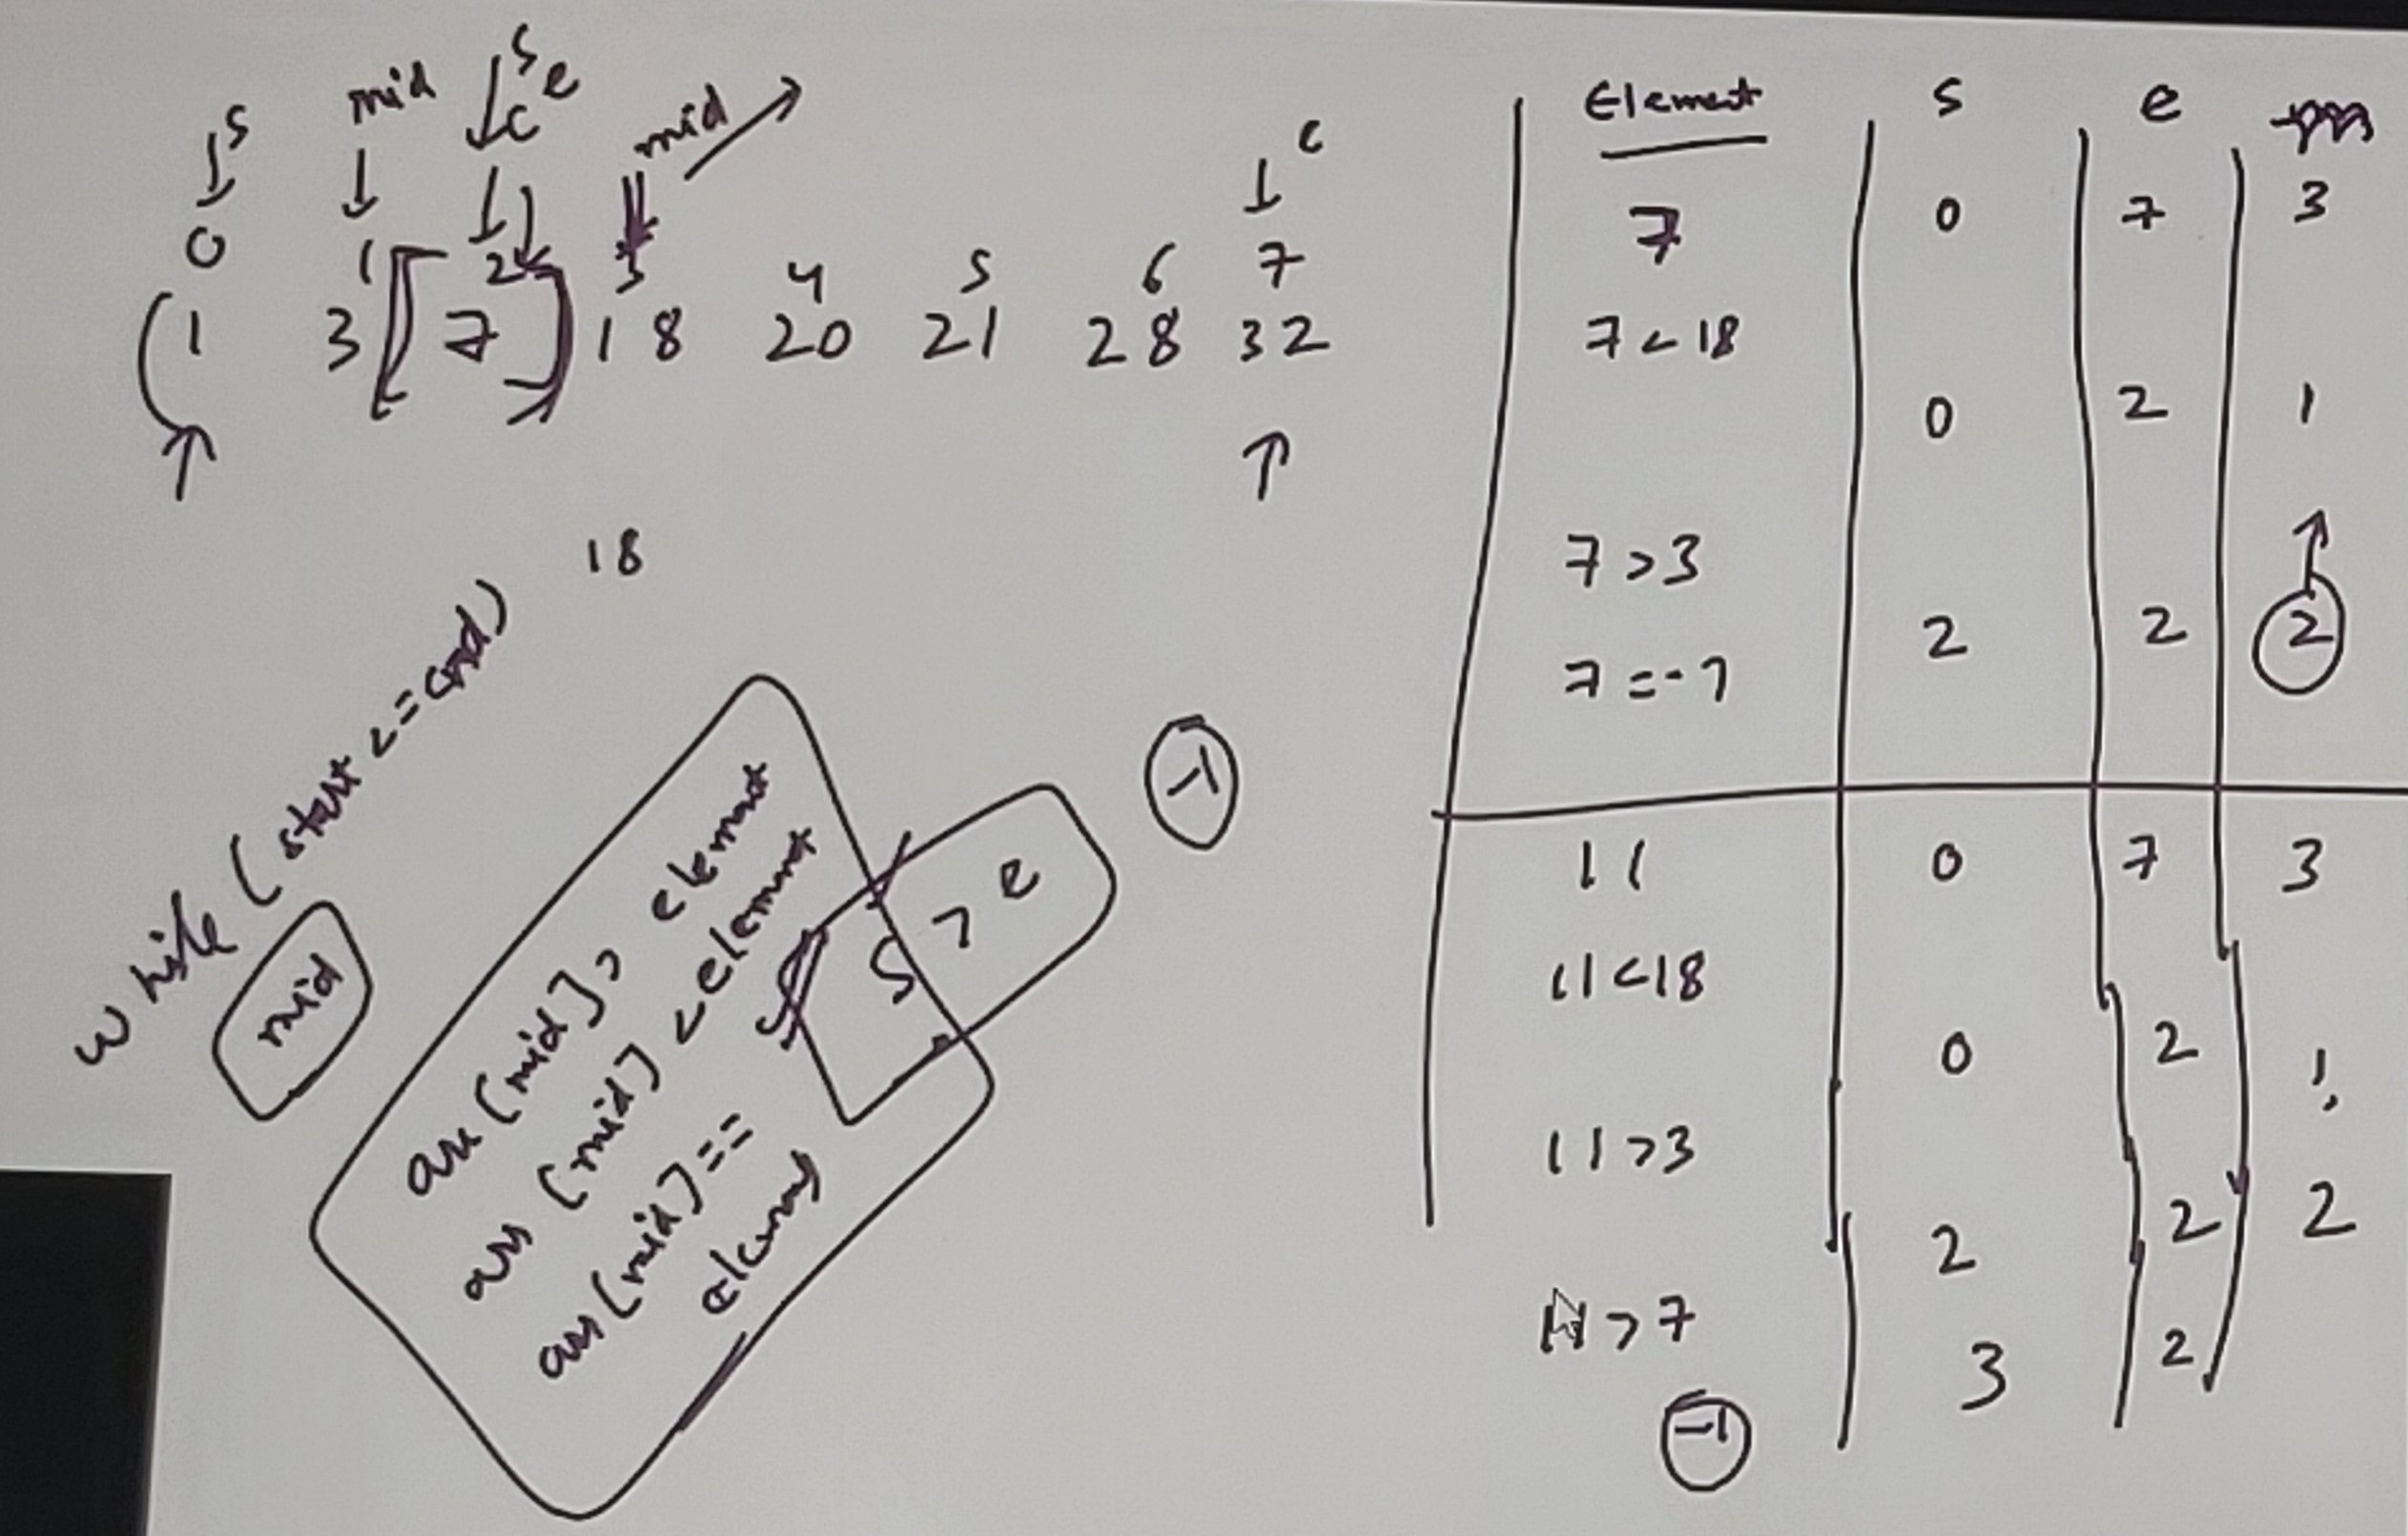 s mid s e mid e
0 1 2 3 4 5 6 7
1 3 7 18 20 21 28 32
18
while (start <= end)
mid
arr[mid] > element
arr[mid] < element
arr[mid] ==
element
s > e
-1
Element s e m
7 0 7 3
7 < 18
0 2 1
7 > 3
2 2 2
7 == 7
11 0 7 3
11 < 18
0 2 1
11 > 3
2 2 2
11 > 7
3 2
-1